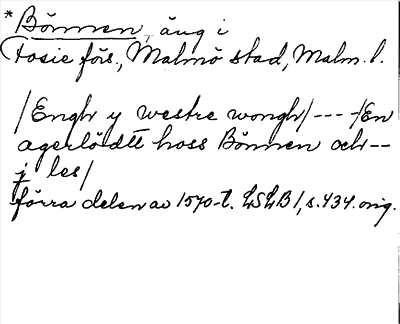 *Bönnen, äng i
Fosie förs., Malmö stad, Malm. l.
/Engh y westre wongh/ --- /En
agerlödtt hoss Bönnen och --
j les/
förra delen av 1570-t. LSLB 1, s. 434. orig.